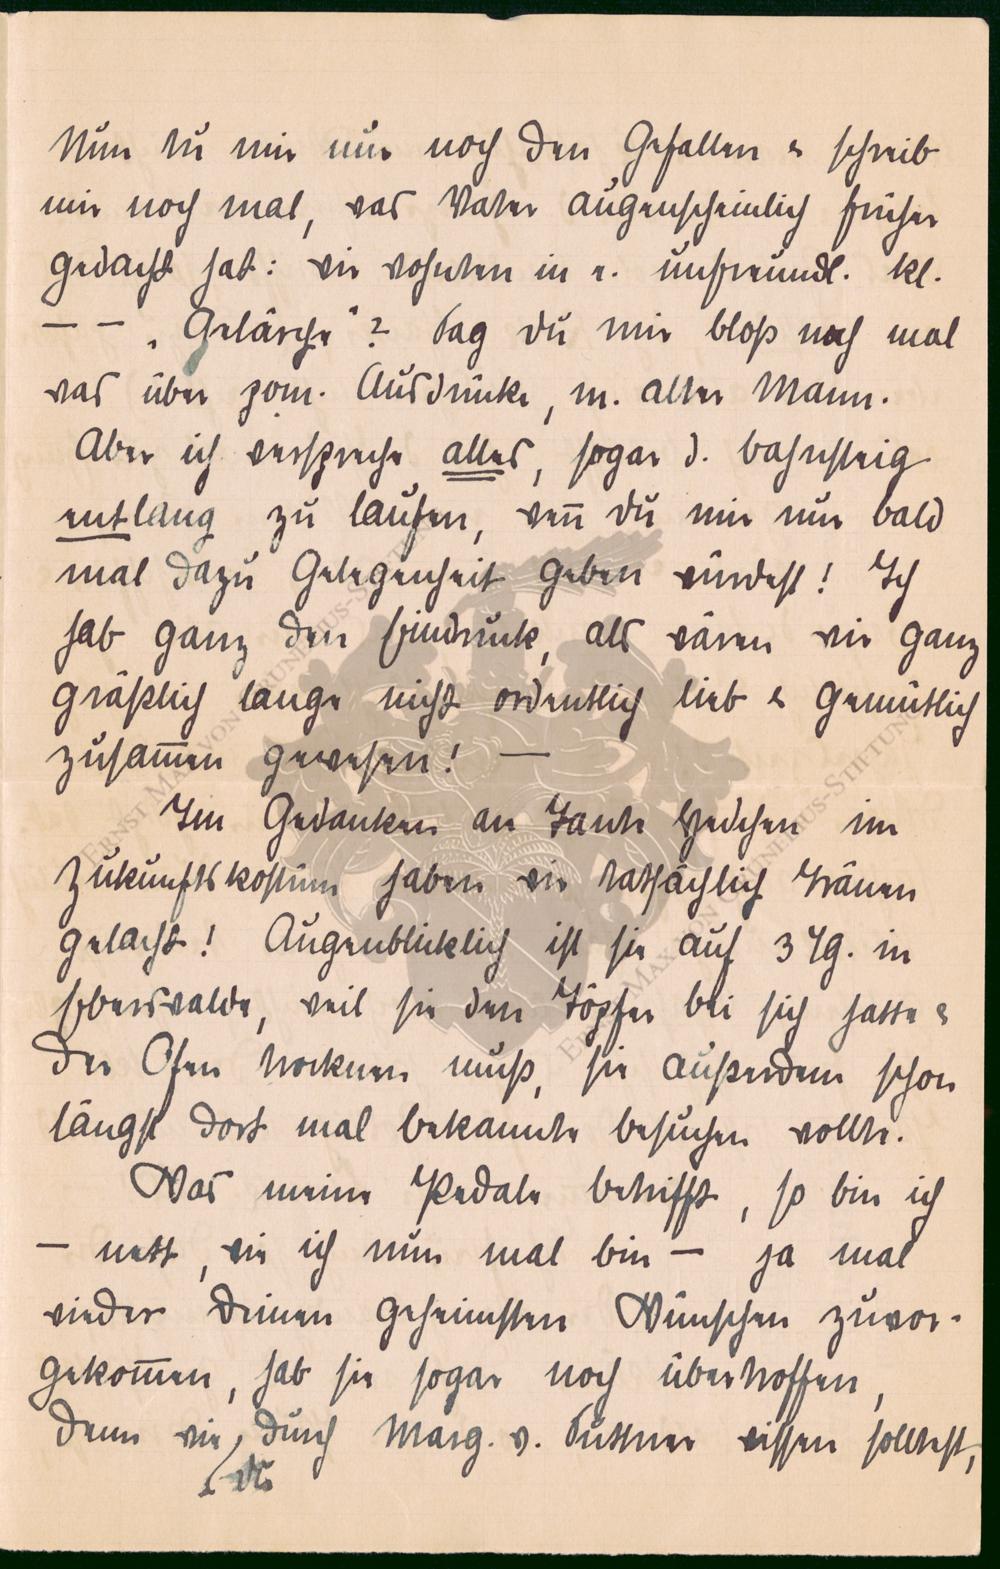 Nun tu mir nur noch den Gefallen & schreib
mir noch mal, was Vater augenscheinlich früher
gedacht hat: wir wohnten in e. unfreundl. kl.
— — „Gelärche"? Sag du mir bloß noch mal
was über zom. Ausdrücke, m. alter Mann.
Aber ich verspreche alles, sogar d. bahnsteig
entlang zu laufen, wen̄ du mir nur bald
mal dazu Gelegenheit geben würdest! Ich
hab ganz den Eindruck, als wären wir ganz
gräßlich lange nicht ordentlich lieb & gemütlich
zusam̄en gewesen! —
Im Gedanken an Tante Hedchen im
Zukunftskostüm haben wir tatsächlich Tränen
gelacht! Augenblicklich ist sie auf 3 Tg. in
Eberswalde, weil sie den Töpfer bei sich hatte &
der Ofen trocknen muß, sie außerdem schon
längst dort mal bekannte besuchen wollte.
Was meine Pedale betrifft, so bin ich
— nett, wie ich nun mal bin — ja mal
wieder deinen geheimsten Wünschen zuvor-
gekom̄en, hab sie sogar noch übertroffen,
denn wie du durch Marg. v. Suttner wissen solltest,